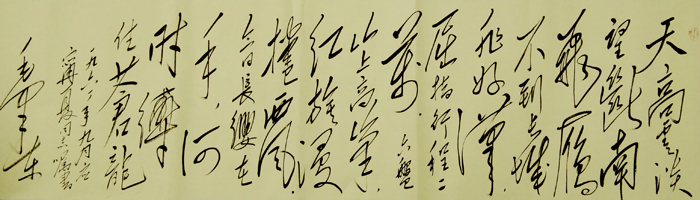 天高雲淡
望斷南
飛雁
不到長城
非好漢
屈指行程二
萬 六盤
山上高峯
紅旗漫
捲西風
今日長纓在
手,何
時縛
住蒼龍
一九六一年九月應
寧夏同志囑書
毛澤東